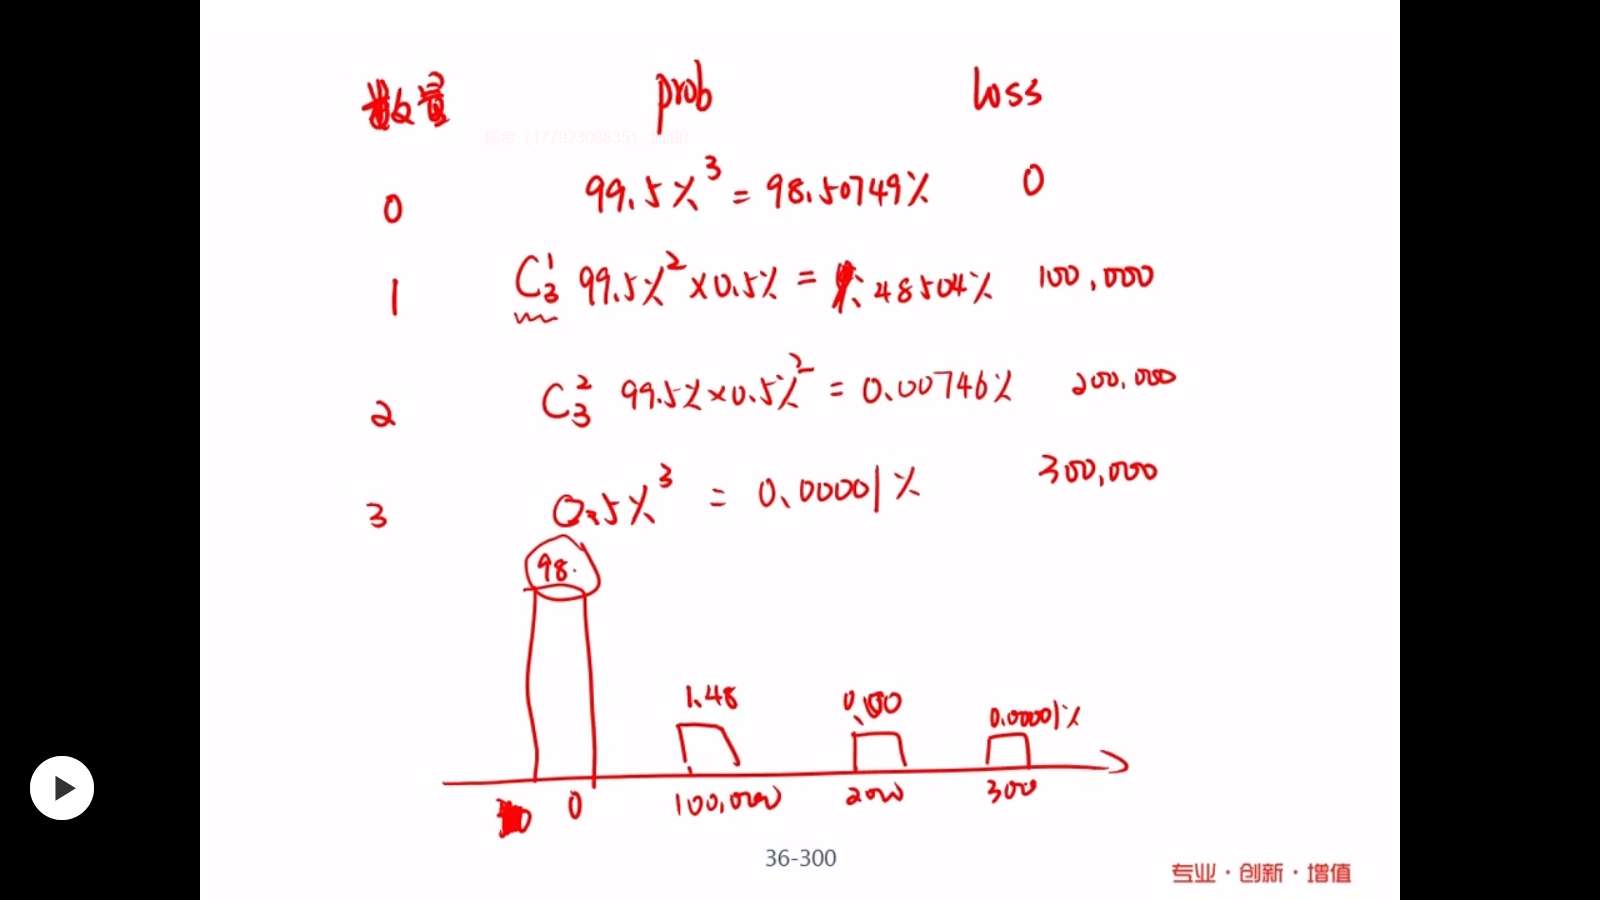 数量 prob loss
0 99.5%³ = 98.50749% 0
1 C₃¹ 99.5%² × 0.5% = 1.48504% 100,000
2 C₃² 99.5% × 0.5%² = 0.00746% 200,000
3 0.5%³ = 0.00001% 300,000
98.
1.48 0.00 0.00001%
0 100,000 200 300
36-300
专业·创新·增值